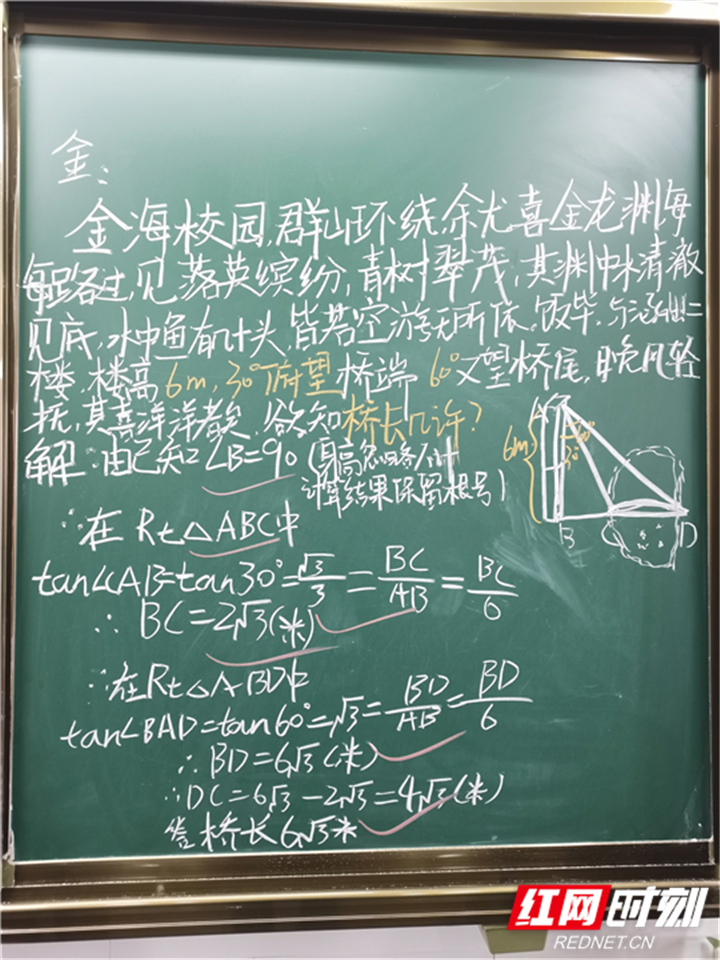 金:
金海校园,群山环绕,余尤喜金龙渊,每
每路过,见落英缤纷,青树翠茂,其渊中水清澈
见底,水中鱼有几十头,皆若空游无所依,饭毕,与涵出二
楼,楼高6m,30°俯望桥端60°又望桥尾,晚风轻
抚,其喜洋洋者矣,欲知桥长几许?
解:由已知∠B=90(身高忽略不计
计算结果保留根号)
∵在Rt△ABC中
tan∠CAB=tan30°=√3/3=BC/AB=BC/6
∴BC=2√3(米)
∵在Rt△ABD中
tan∠BAD=tan60°=√3=BD/AB=BD/6
∴BD=6√3(米)
∴DC=6√3-2√3=4√3(米)
答桥长6√3米
6m
30°
B
C
D
红网时刻
REDNET.CN